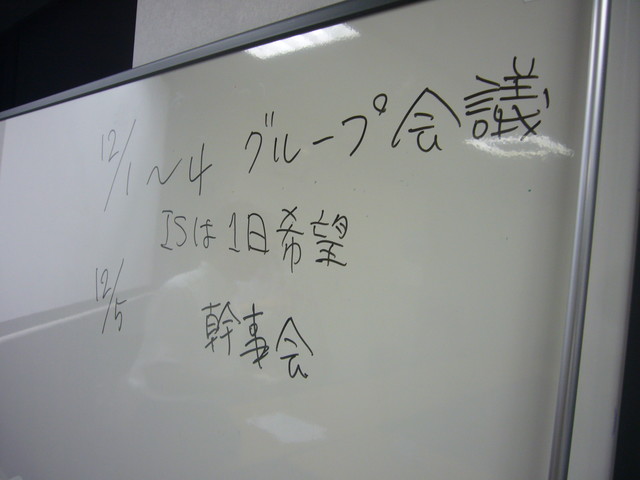 12/1～4 グループ会議
ISは1日希望
12/5 幹事会